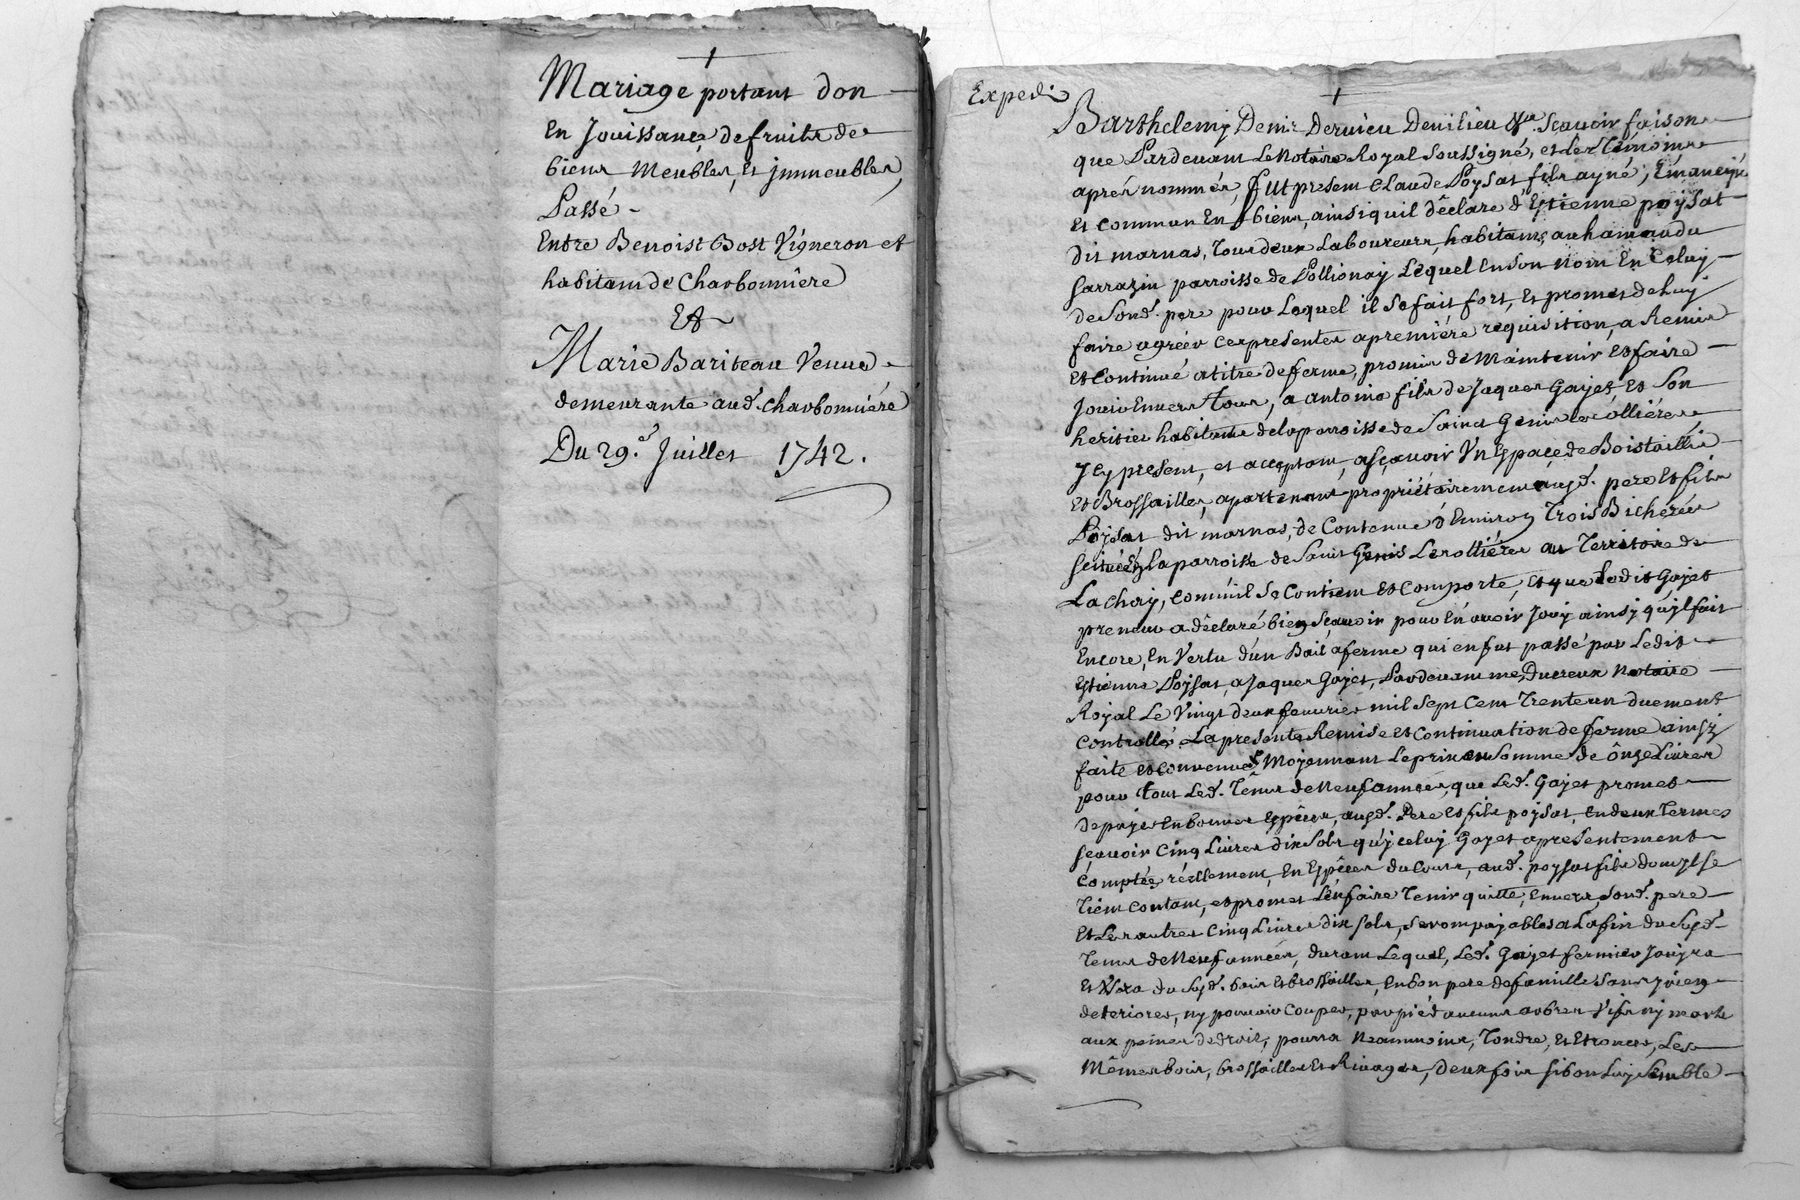 Mariage portant don
En Jouissance de fruits de
biens Meubles, Et jmmeubles,
Passé
Entre Benoist Bost Vigneron et
habitant de Charbonnière
Et
Marie Bariteau Venue
demeurante aud. charbonniére
Du 29.e Juillet 1742.
Expedié
Barthelemy Denis Dervieu Devilieu &a. Scavoir faisons
que Pardevant Le Notaire Royal Soussigné, et les Témoins
aprés nommés, fUt present Claude Poÿsat fils ayné, Emancipé
Et commun En biens, ainsi quil déclare d'Estienne poÿsat
dit marnas, Tous deux Laboureurs, habitans, au hameau du
Sarrazin parroisse de Pollionaÿ Lequel En son nom En Celuy
de Sond. pere pour Lequel il se fait fort, Et promet de Luÿ
faire agréér ces presentes a premiére requisition, a Remis
Et Continué a titre de ferme, promis de Maintenir Et faire
Jouir Envers tous, a antoine fils de Jaques Gayet, Et Son
heritier habitants de la parroisse de Sainct Genis les olliéres
Jcy present, et acceptant, asçavoir Vn Espace de Bois taillis
Et Brossailles, apartenant propriétairement ausd. pere Et fils
Poÿsat dit marnas, de Contenue d'Environ Trois Bicherées
scitué En la parroisse de Saint Genis Lesolliéres au Territoire de
La choiy, comm'il Se Contient Et Comporte, Et que Ledit Gaÿet
preneur a déclaré bien Scavoir pour En avoir Jouÿ ainsÿ qu'jl fait
Encore, En Vertu d'un Bail a ferme qui en fut passé par Ledit
Estienne Poÿsat, a Jaques Gaÿet, Pardevant me. Ducreux Notaire
Roÿal Le Vingt deux feuvrier mil Sept Cent Trente un duement
Controllé La presente Remise et Continuation de ferme ainsÿ
faite et convenue Moÿennant Le prix et Somme de ônze Livres
pour tout Led. Tems de Neuf années, que Led. Gaÿet promet
de paÿer En bonnes Espéces, ausd. Pere et fils poÿsat, En deux Termes
sçavoir Cinq Livres dix Sols qu'jceluÿ Gaÿet apresentement
comptés réellement, En Espéces du Cours, aud. poÿsat fils dont jl se
tient contant, et promet L'en faire Tenir quitte, Envers sond. pere
Et Les autres Cinq Livres dix sols, seront paÿables a La fin du Susd.
Tems de Neuf années, durant Lequel, Led. Gaÿet fermier Jouÿra
Et Vsera du Susd. bois Et brossailles, En bon pere de famille Sans y rien
deteriorer, nÿ pouvoir Couper, par pied aucuns arbres Vifs nÿ morts
aux peines de droit, pourra Neanmoins, Tondre, Et Etroncer, Les
Mêmes bois, brossailles Et Rivages, deux fois si bon Luy Semble